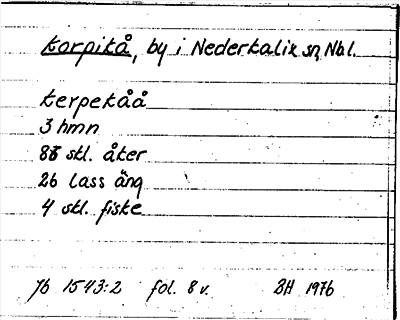 Korpikå, by i Nederkalix sn Nbl.
Kerpekåå
3 hmn
86 skl. åker
26 lass äng
4 skl. fiske
Jb 1543:2 fol. 8 v. BH 1976